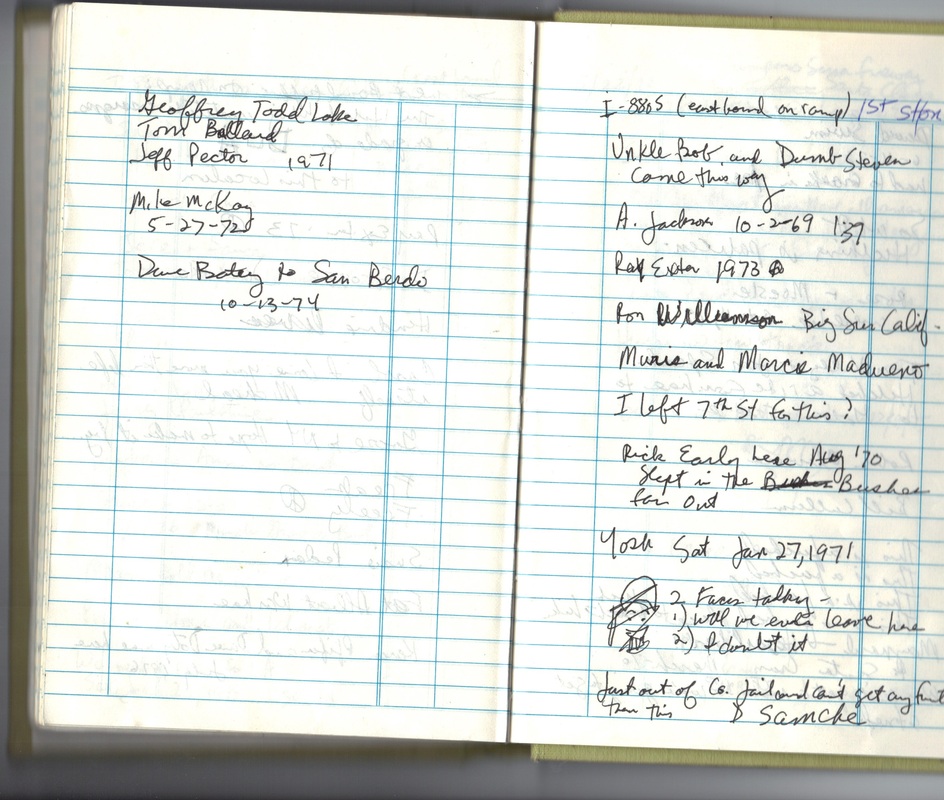 Geoffrey Todd Lake
Tom Ballard
Jeff Pector 1971
Mike McKay
5-27-72
Dave Batey to San Berdo
10-13-74
I-880S (eastbound on ramp) 1st stop
Unkle Bob and Dumb Steven
came this way
A. Jackson 10-2-69 1:37
Exter 1973
Ron Williamson Big Sur Calif-
and Marcie Madueno
I left 7th St for this?
Rick Early here Aug '70
Slept in the Bushes
far out
Yosh Sat Jan 27, 1971
2 Faces talking -
1) will we ever leave here
2) I doubt it
Just out of Co. Jail and can't get any
than this D Samche